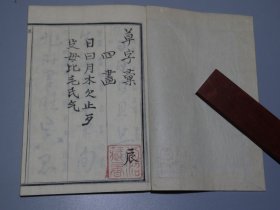 草字彙
四畫
日曰月木欠止歹
殳毋比毛氏气
辰